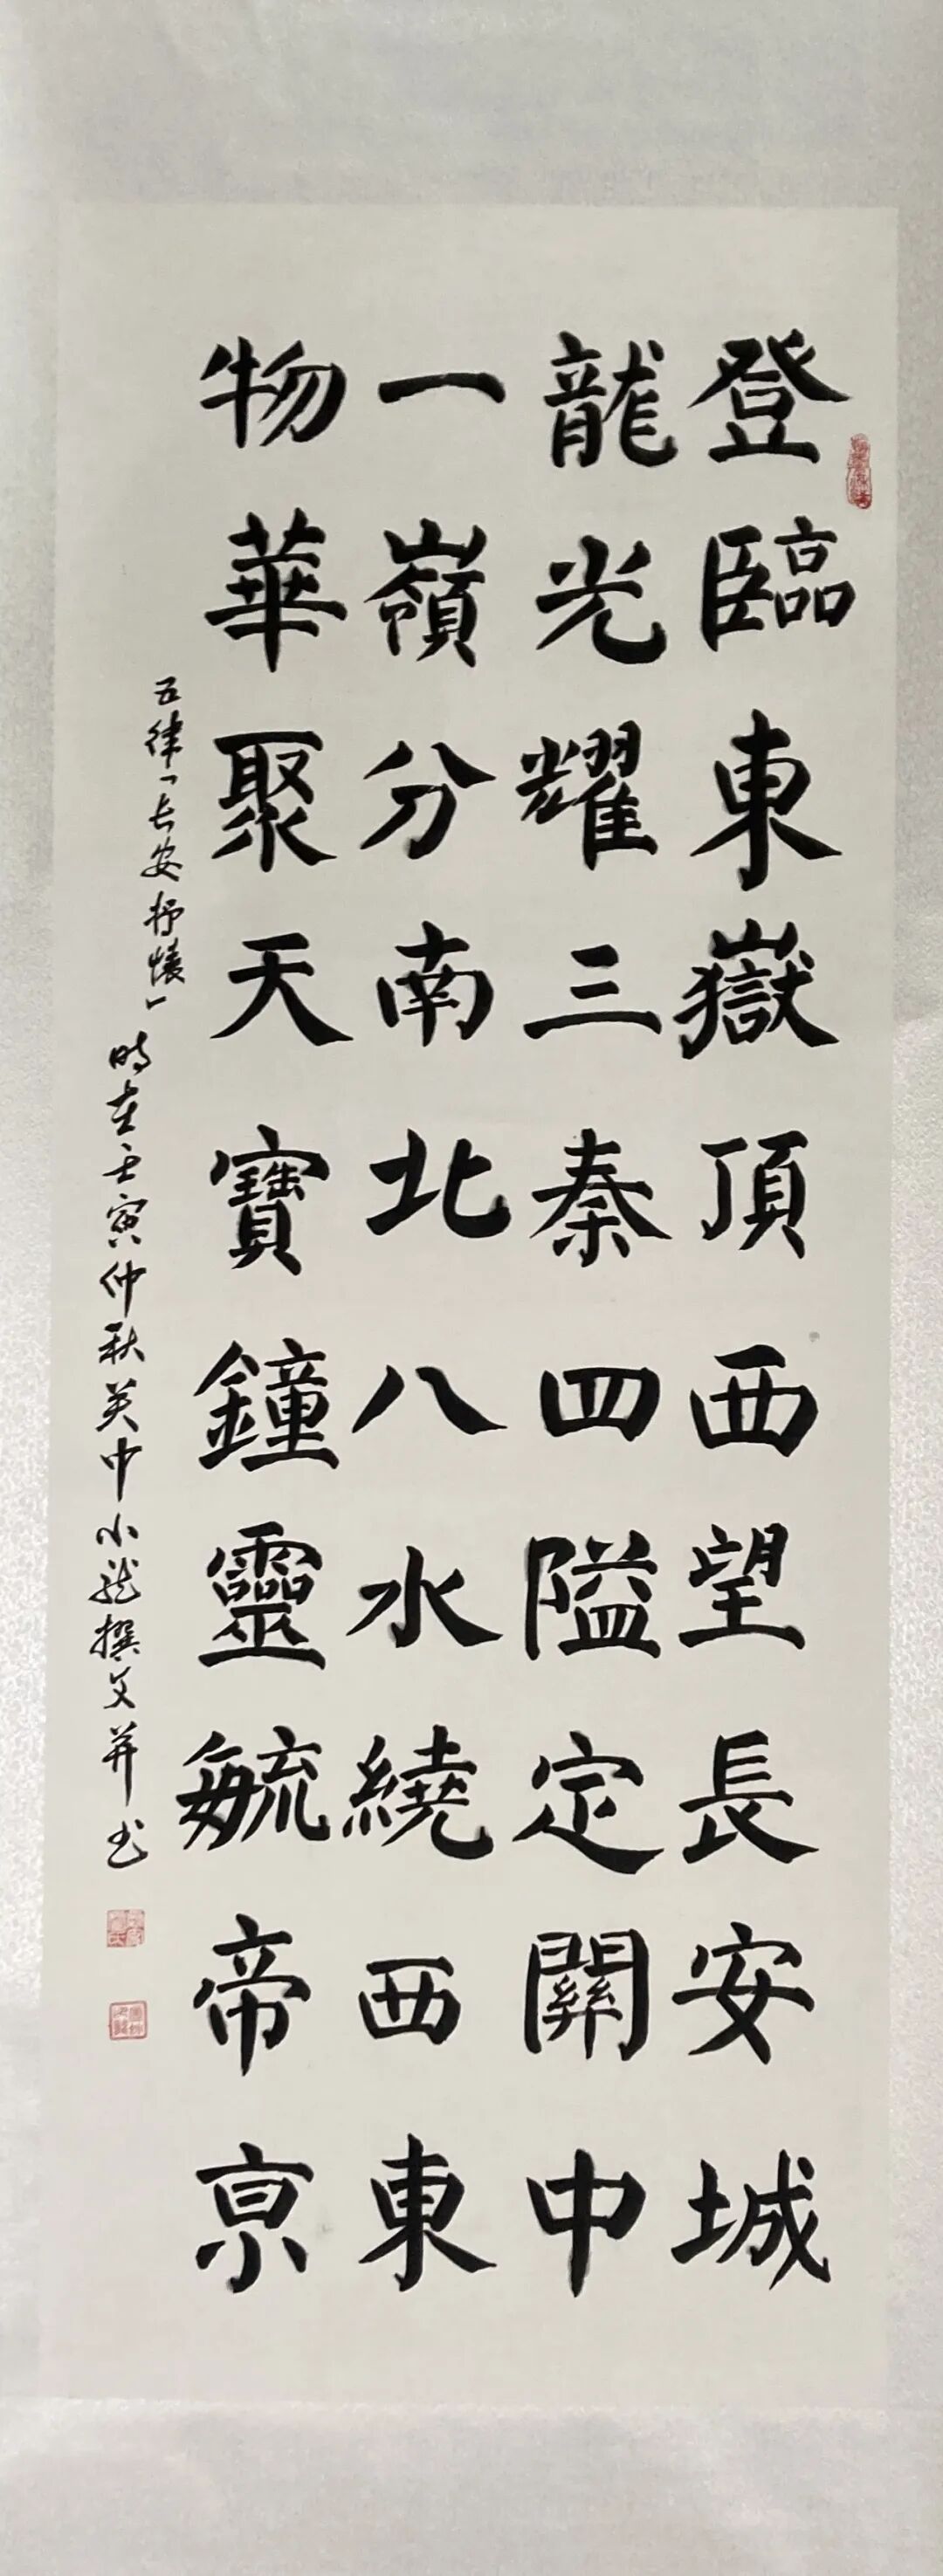 登臨東嶽頂西望長安城
龍光耀三秦四隘定關中
一嶺分南北八水繞西東
物華聚天寶鐘靈毓帝京
五律「長安抒懷」
時在壬寅仲秋关中小龍撰文并书